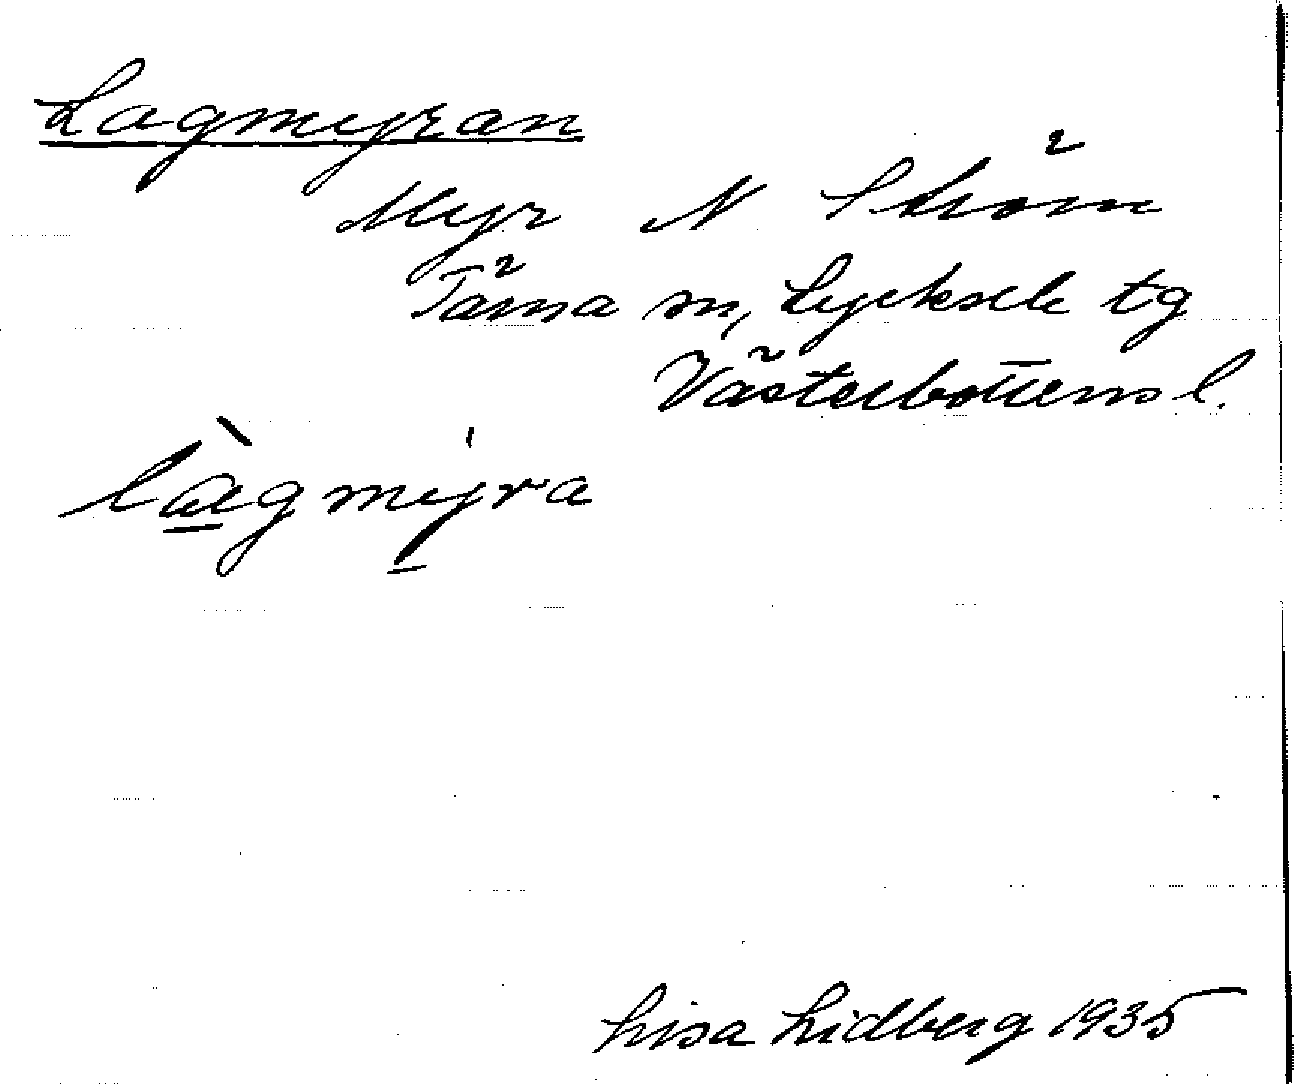 Lagmyran
Myr N Ström
Tärna sn, Lycksele tg
Västerbottens l.
là̱gmy̱ra
Lisa Lidberg 1935